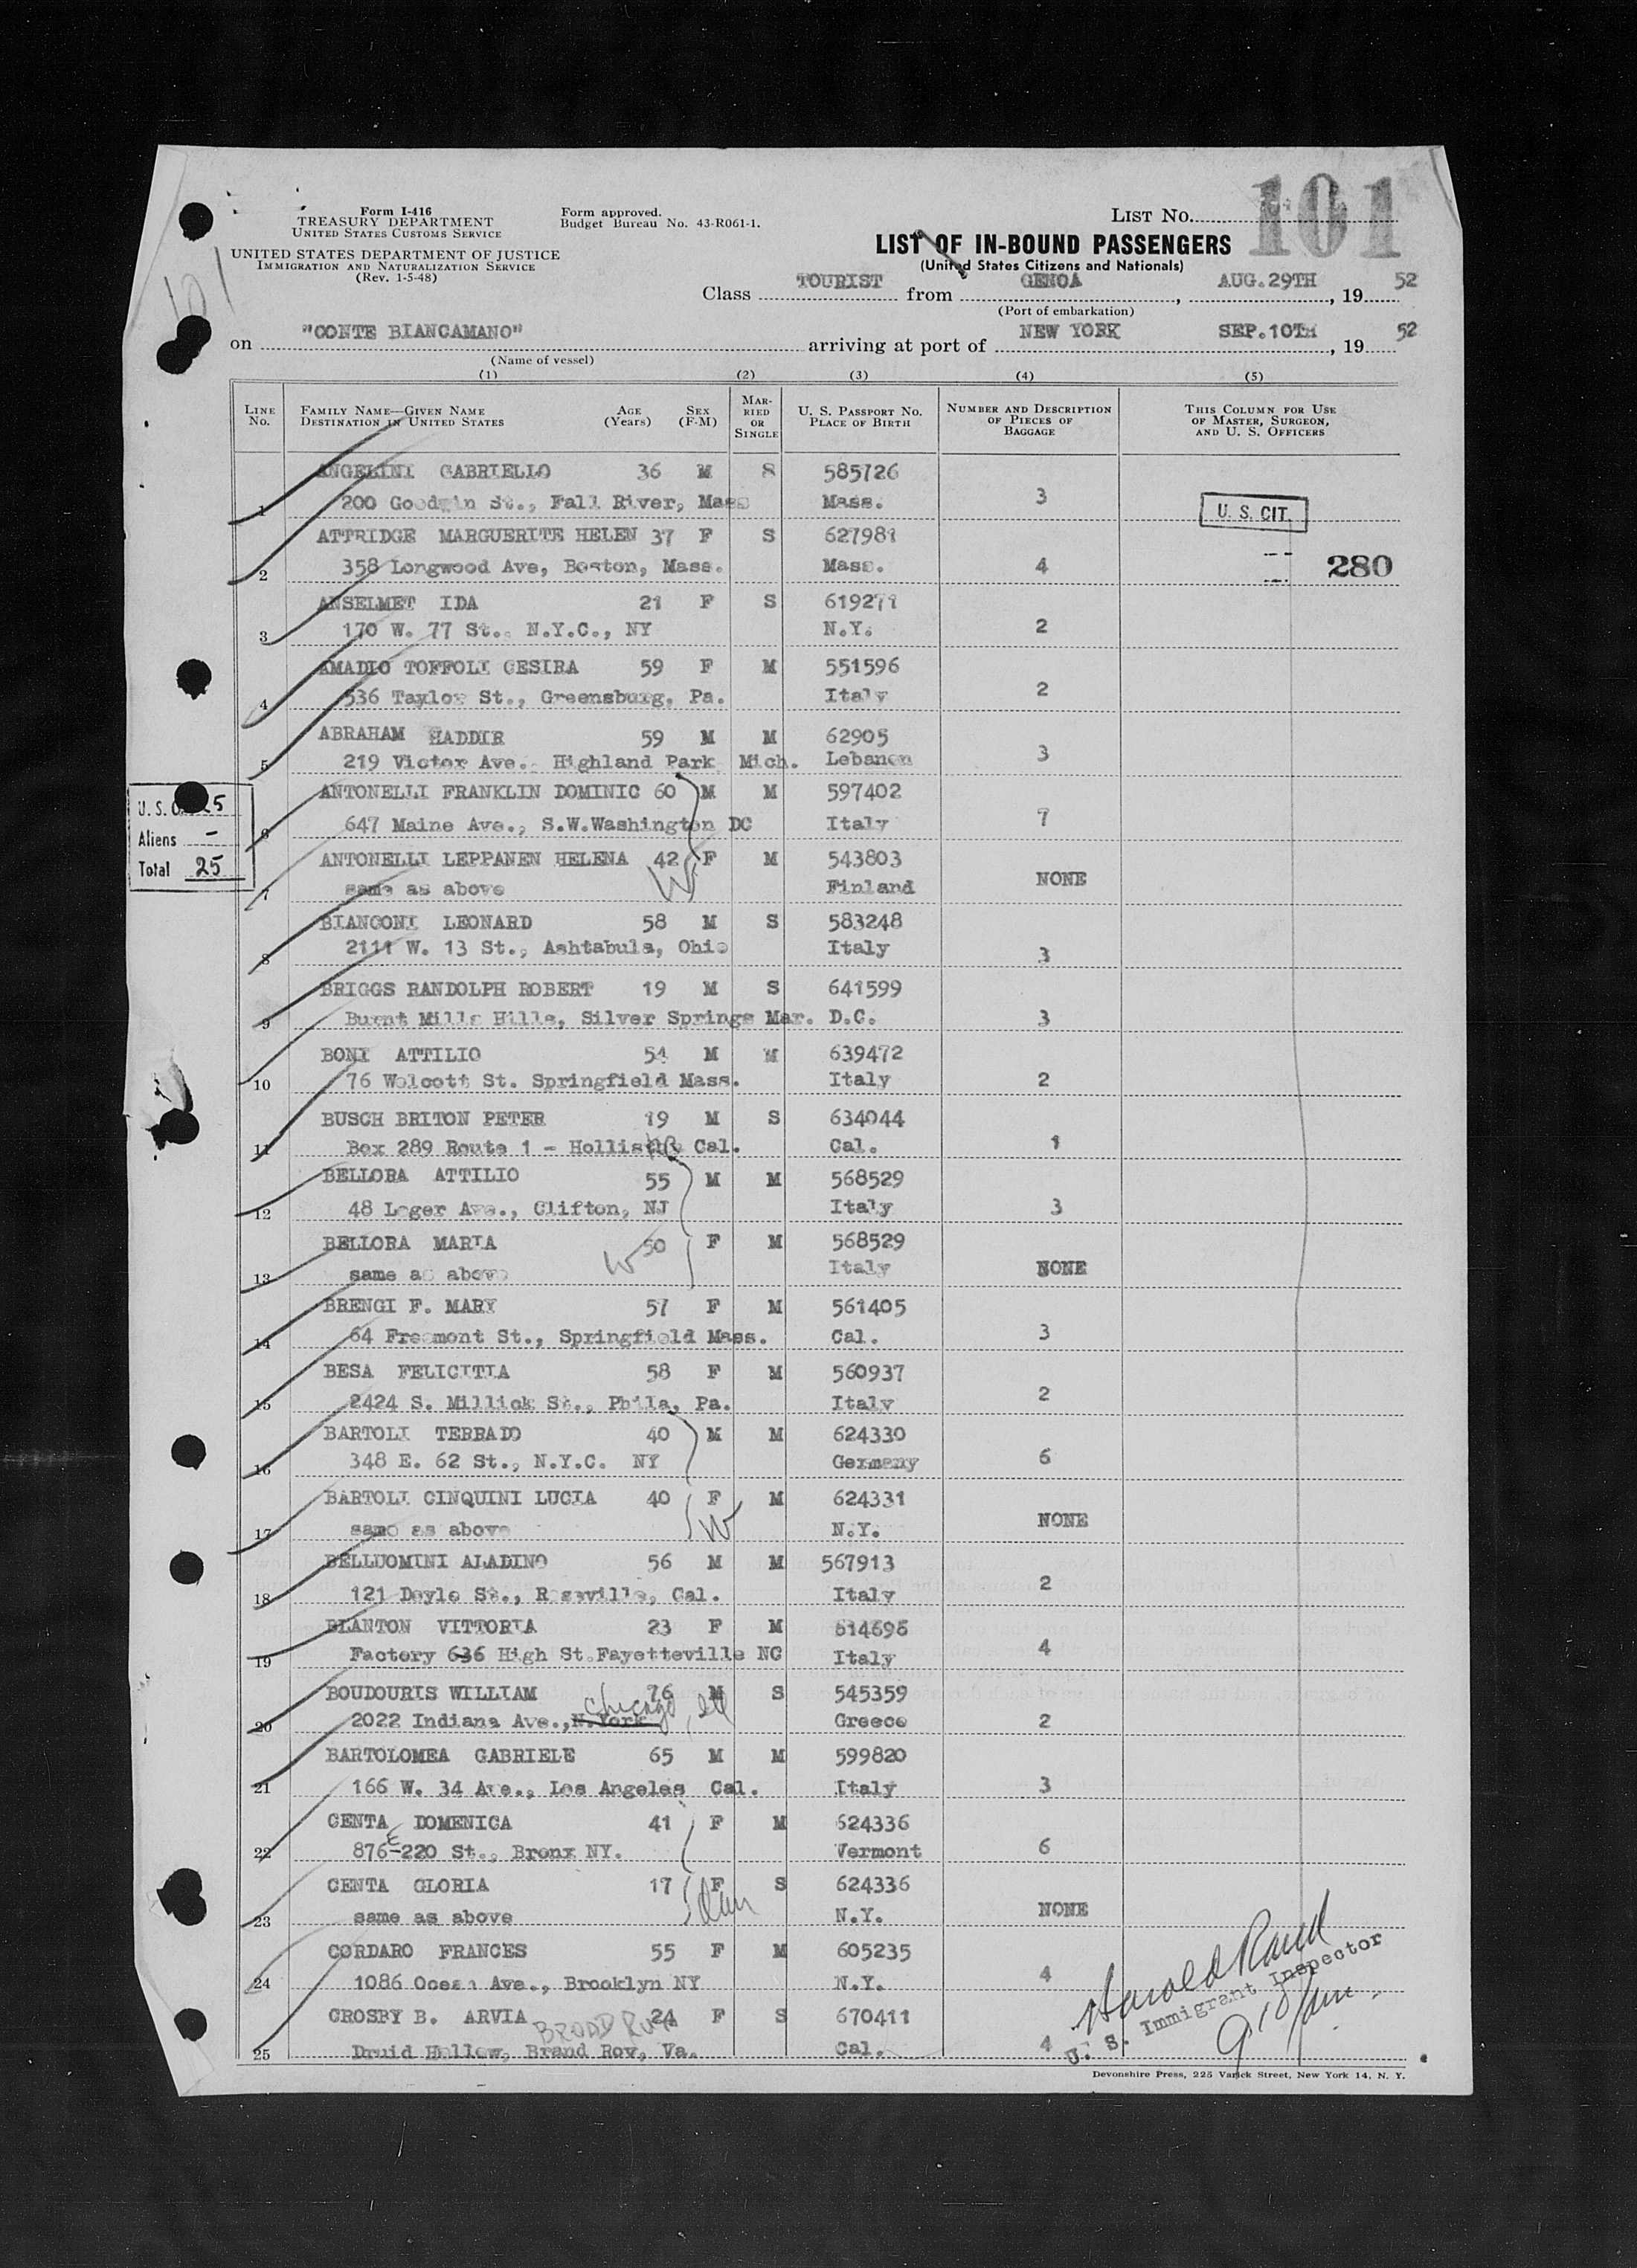 101
Form I-416
TREASURY DEPARTMENT
UNITED STATES CUSTOMS SERVICE
UNITED STATES DEPARTMENT OF JUSTICE
IMMIGRATION AND NATURALIZATION SERVICE
(Rev. 1-5-48)
Form approved.
Budget Bureau No. 43-R061-1.
LIST No. 101
LIST OF IN-BOUND PASSENGERS
(United States Citizens and Nationals)
Class TOURIST from GENOA, AUG.29TH, 19 52
(Port of embarkation)
on "CONTE BIANCAMANO" arriving at port of NEW YORK SEP.10TH, 19 52
(Name of vessel)
(1) (2) (3) (4) (5)
LINE No. FAMILY NAME—GIVEN NAME DESTINATION IN UNITED STATES AGE (Years) SEX (F-M) MARRIED OR SINGLE U. S. PASSPORT No. PLACE OF BIRTH NUMBER AND DESCRIPTION OF PIECES OF BAGGAGE THIS COLUMN FOR USE OF MASTER, SURGEON, AND U. S. OFFICERS
ANGELINI GABRIELLO 36 M S 585726
1 200 Goodwin St., Fall River, Mass Mass. 3
U. S. CIT.
ATTRIDGE MARGUERITE HELEN 37 F S 627981
2 358 Longwood Ave, Boston, Mass. Mass. 4 280
ANSELMET IDA 21 F S 619271
3 170 W. 77 St.. N.Y.C., NY N.Y. 2
AMADIO TOFFOLI GESIRA 59 F M 551596
4 536 Taylor St., Greensburg, Pa. Italy 2
ABRAHAM HADDIR 59 M M 62905
5 219 Victor Ave.. Highland Park Mich. Lebanon 3
ANTONELLI FRANKLIN DOMINIC 60 M M 597402
6 647 Maine Ave., S.W.Washington DC Italy 7
ANTONELLI LEPPANEN HELENA 42 F M 543803
7 same as above W Finland NONE
U. S. C. 25
Aliens -
Total 25
BIANCONI LEONARD 58 M S 583248
8 2111 W. 13 St., Ashtabula, Ohio Italy 3
BRIGGS RANDOLPH ROBERT 19 M S 641599
9 Burnt Mills Hills, Silver Springs Mar. D.C. 3
BONI ATTILIO 54 M M 639472
10 76 Wolcott St. Springfield Mass. Italy 2
BUSCH BRITON PETER 19 M S 634044
11 Box 289 Route 1 - Hollister Cal. Cal. 1
BELLORA ATTILIO 55 M M 568529
12 48 Lager Ave., Clifton, NJ Italy 3
BELLORA MARIA 50 F M 568529
13 same as above W Italy NONE
BRENGI F. MARY 57 F M 561405
14 64 Freemont St., Springfield Mass. Cal. 3
BESA FELICITIA 58 F M 560937
15 2424 S. Millick St., Phila, Pa. Italy 2
BARTOLI TERRADO 40 M M 624330
16 348 E. 62 St., N.Y.C. NY Germany 6
BARTOLI CINQUINI LUCIA 40 F M 624331
17 same as above W N.Y. NONE
BELLUOMINI ALADINO 56 M M 567913
18 121 Doyle St., Roseville, Cal. Italy 2
BLANTON VITTORIA 23 F M 614696
19 Factory 636 High St.Fayetteville NC Italy 4
BOUDOURIS WILLIAM 76 M S 545359
20 2022 Indiana Ave.,N.York Chicago, Ill Greece 2
BARTOLOMEA GABRIELE 65 M M 599820
21 166 W. 34 Ave., Los Angeles Cal. Italy 3
CENTA DOMENICA 41 F M 624336
22 876-E 220 St., Bronx NY. Vermont 6
CENTA GLORIA 17 F S 624336
23 same as above N.Y. NONE
CORDARO FRANCES 55 F M 605235
24 1086 Ocean Ave., Brooklyn NY N.Y. 4
CROSBY B. ARVIA 24 F S 670411
BROAD RUN
25 Druid Hollow, Brand Rov, Va. Cal. 4
Harold Rand
U. S. Immigrant Inspector
Devonshire Press, 225 Varick Street, New York 14, N. Y.